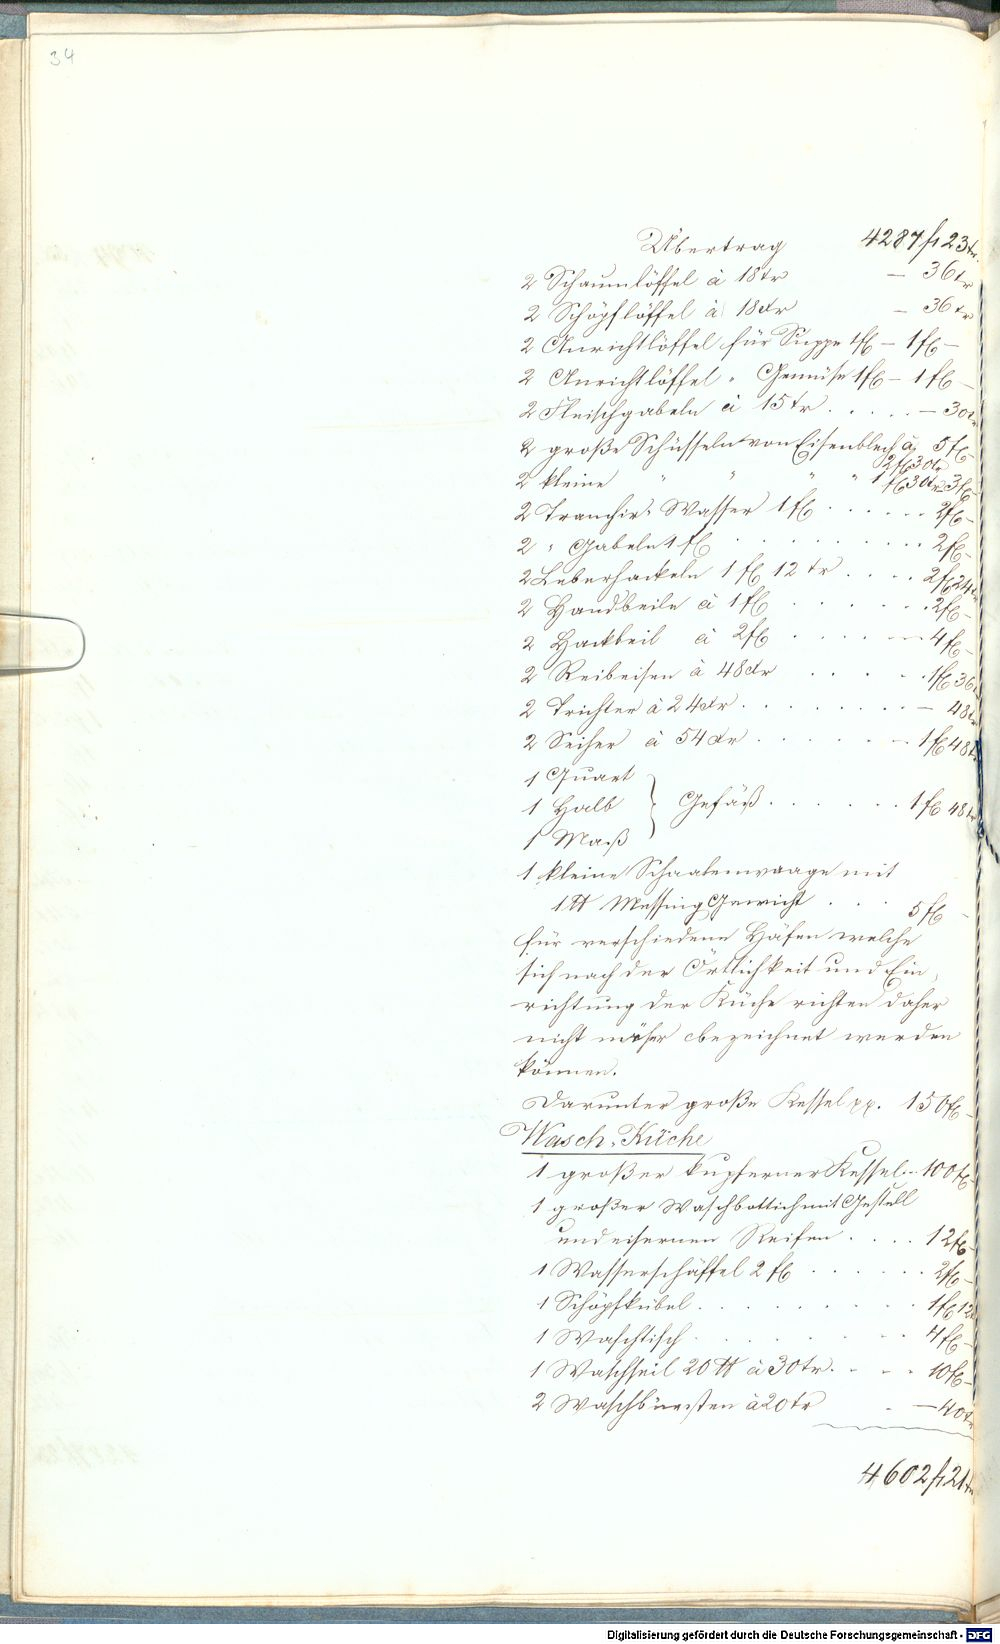 34
Übertrag 4287 fl 23 kr.
2 Schaumlöffel à 18 kr — 36 kr
2 Schöpflöffel à 18 kr — 36 kr
2 Anrichtlöffel für Suppe 1 fl — 1 fl —
2 Anrichtlöffel " Gemüse 1 fl — 1 fl —
2 Fleischgabeln à 15 kr . . . . . — 30 kr
2 große Schüsseln von Eisenblech à 2 fl 30 kr 5 fl —
2 kleine " " " " 1 fl 30 kr 3 fl —
2 Tranchir-Messer 1 fl . . . . . . 2 fl —
2 " Gabeln 1 fl . . . . . . . . 2 fl —
2 Leberhackeln 1 fl 12 kr . . . . 2 fl 24 kr
2 Handbeile à 1 fl . . . . . . . 2 fl —
2 Hackbeil à 2 fl . . . . . — 4 fl —
2 Reibeisen à 48 kr . . . . . 1 fl 36 kr
2 Trichter à 24 kr . . . . . . . . — 48 kr
2 Seiher à 54 kr . . . . . . — 1 fl 48 kr
1 Quart
1 Halb } Gefäß . . . . . . 1 fl 48 kr
1 Maß
1 kleine Schaalenwaage mit
1 ℔ Messing Gewicht . . . 5 fl —
für verschiedene Häfen welche
sich nach der Örtlichkeit und Ein-
richtung der Küche richten daher
nicht näher bezeichnet werden
können.
Darunter große Kessel pp. 150 fl —
Wasch-Küche
1 großer kupferner Kessel — 100 fl —
1 großer Waschbottich mit Gestell
und eisernen Reifen . . . . 12 fl —
1 Wasserschäffel 2 fl . . . . . . 2 fl —
1 Schöpfkübel . . . . . . . . . 1 fl 12 kr
1 Waschtisch . . . . . . . . . 4 fl —
1 Waschseil 20 ℔ à 30 kr . - . - 10 fl —
2 Waschbürsten à 20 kr . — 40 kr
4602 fl 21 kr
Digitalisierung gefördert durch die Deutsche Forschungsgemeinschaft - DFG